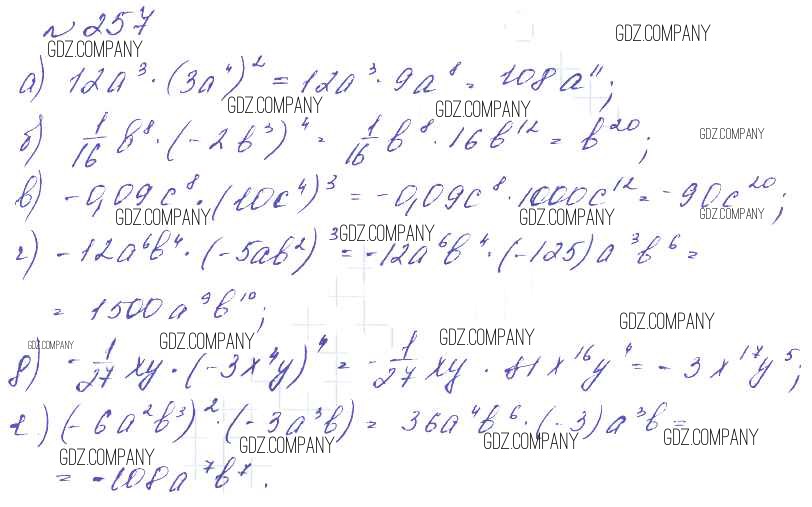 №257
GDZ.COMPANY GDZ.COMPANY
а) 12a³ · (3a⁴)² = 12a³ · 9a⁸ = 108a¹¹;
GDZ.COMPANY GDZ.COMPANY
б) 1/16 b⁸ · (-2b³)⁴ = 1/16 b⁸ · 16b¹² = b²⁰;
GDZ.COMPANY
в) -0,09c⁸ · (10c⁴)³ = -0,09c⁸ · 1000c¹² = -90c²⁰;
GDZ.COMPANY GDZ.COMPANY GDZ.COMPANY
г) -12a⁶b⁴ · (-5ab²)³ = -12a⁶b⁴ · (-125)a³b⁶ =
GDZ.COMPANY
= 1500a⁹b¹⁰;
GDZ.COMPANY GDZ.COMPANY GDZ.COMPANY GDZ.COMPANY
д) -1/27 xy · (-3x⁴y)⁴ = -1/27 xy · 81x¹⁶y⁴ = -3x¹⁷y⁵;
е) (-6a²b³)² · (-3a³b) = 36a⁴b⁶ · (-3)a³b =
GDZ.COMPANY GDZ.COMPANY GDZ.COMPANY GDZ.COMPANY
= -108a⁷b⁷.